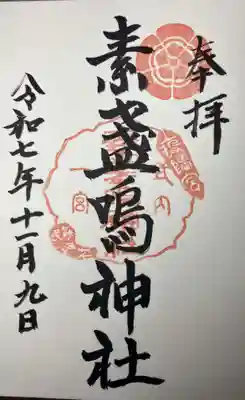 奉拝
素盞嗚神社
令和七年十一月九日